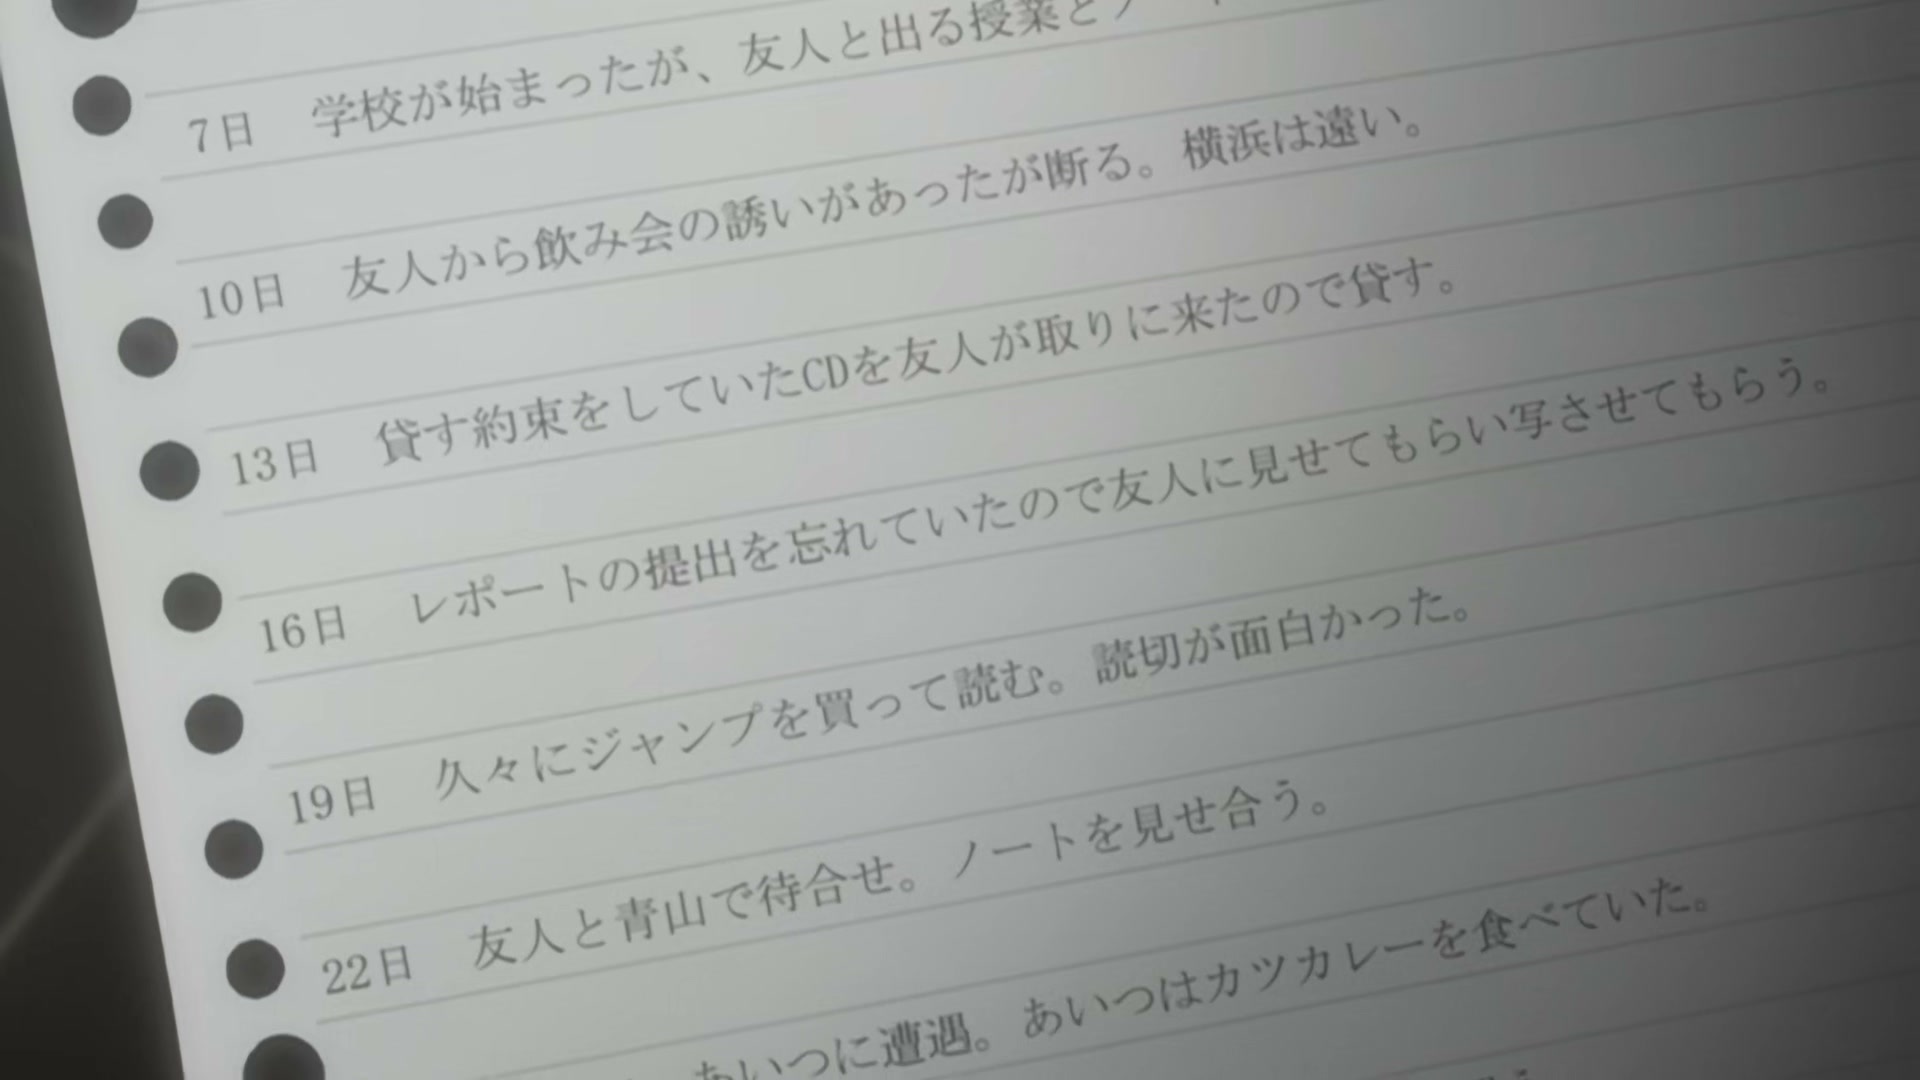 7日 学校が始まったが、友人と出る授業と
10日 友人から飲み会の誘いがあったが断る。横浜は遠い。
13日 貸す約束をしていたCDを友人が取りに来たので貸す。
16日 レポートの提出を忘れていたので友人に見せてもらい写させてもらう。
19日 久々にジャンプを買って読む。読切が面白かった。
22日 友人と青山で待合せ。ノートを見せ合う。
あいつに遭遇。あいつはカツカレーを食べていた。